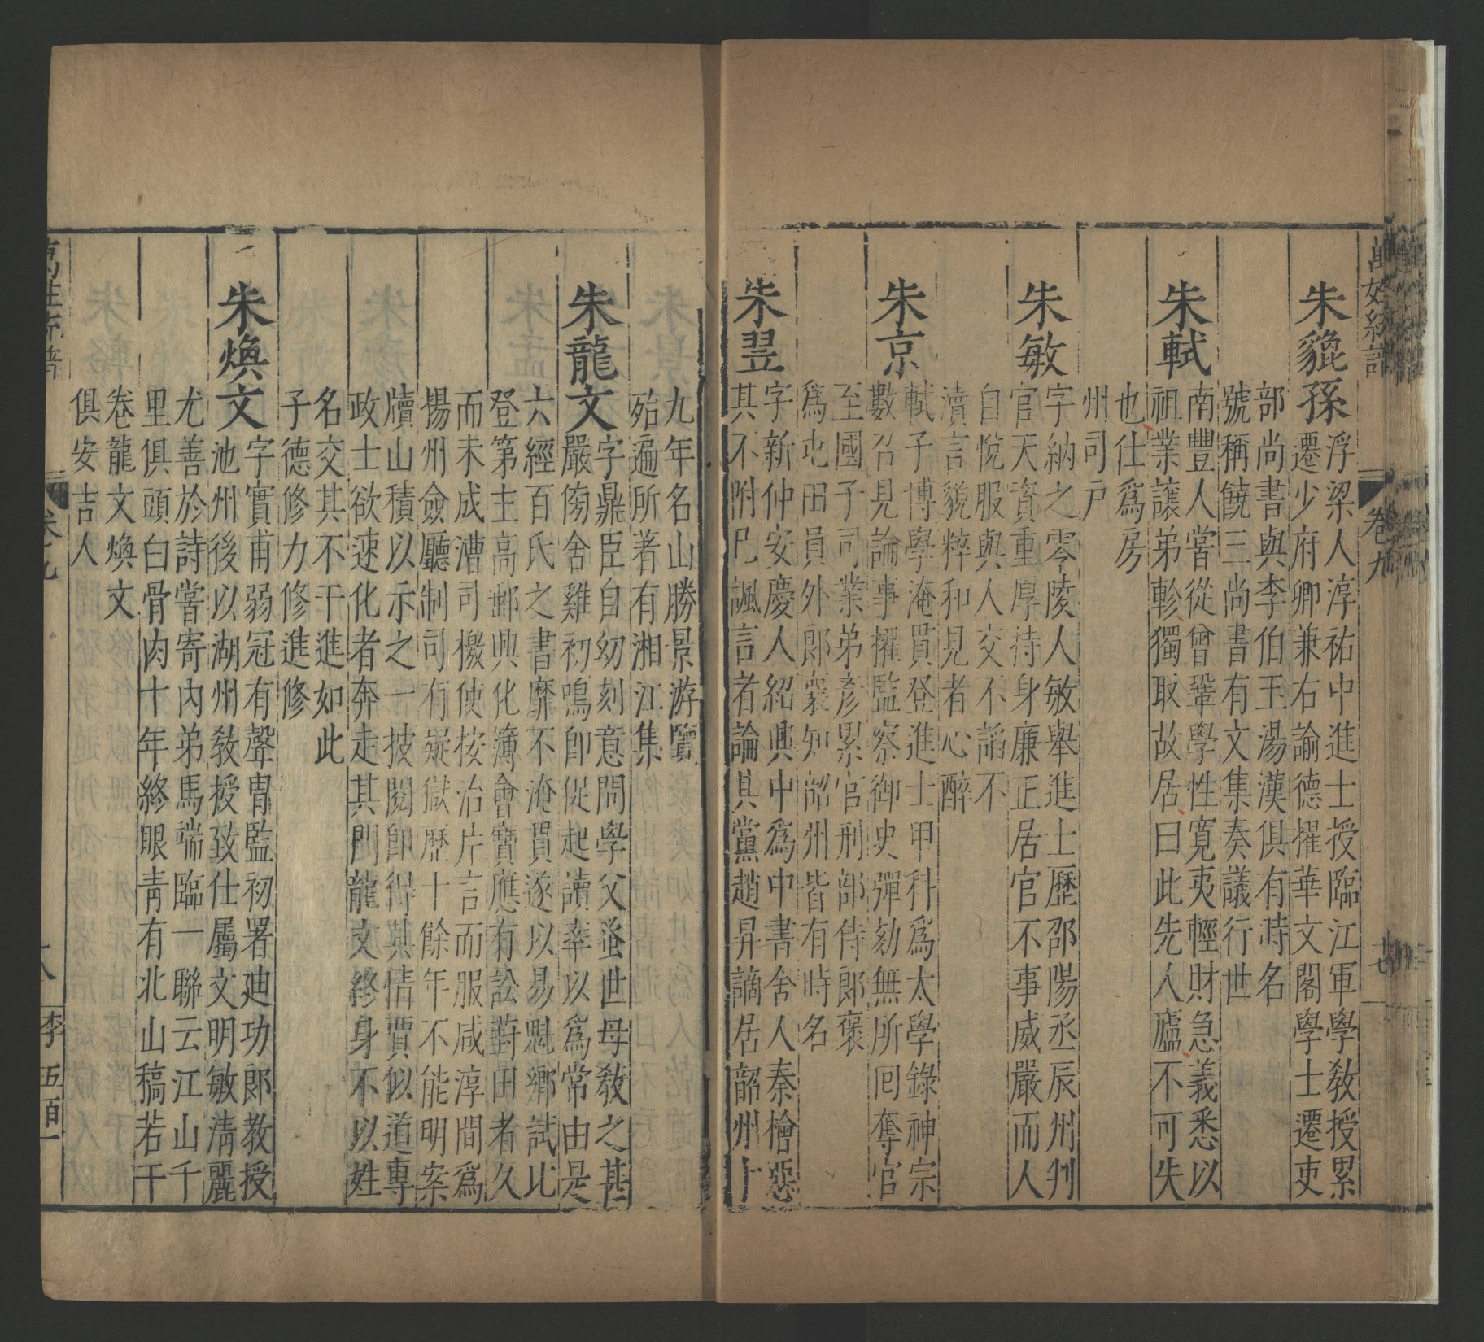 萬姓統譜
卷九
十七
朱貔孫
浮梁人淳祐中進士授臨江軍學敎授累
遷少府卿兼右諭德擢華文閣學士遷吏
部尚書與李伯玉湯漢俱有時名
號稱饒三尚書有文集奏議行世
朱軾
南豐人嘗從曾鞏學性寬夷輕財急義悉以
祖業讓弟軫獨取故居曰此先人廬不可失
也仕爲房
州司戸
朱敏
字納之零陵人敏舉進士歷邵陽丞辰州判
官天資重厚待身廉正居官不事威嚴而人
自悅服與人交不謟不
瀆言貌粹和見者心醉
朱京
軾子博學淹貫登進士甲科爲太學錄神宗
數召見論事擢監察御史彈劾無所回奪官
至國子司業弟彥累官刑部侍郎褒
爲屯田員外郎裳知韶州皆有時名
朱翌
字新仲安慶人紹興中爲中書舍人秦檜惡
其不附巳諷言者論其黨趙昇謫居韶州十
九年名山勝景游覽
殆遍所著有湘江集
朱龍文
字鼎臣自幼刻意問學父蚤世母敎之甚
嚴傍舍雞初鳴卽促起讀率以爲常由是
六經百氏之書靡不淹貫遂以易魁鄉試比
登第主高郵興化簿會寶應有訟蕩田者久
而未成漕司檄使按治片言而服咸淳間爲
揚州僉廳制司有嶷獄歷十餘年不能明案
牘山積以示之一披閱卽得其情賈似道專
政士欲速化者奔走其門龍文終身不以姓
名交其不干進如此
子德修力修進修
朱煥文
字實甫弱冠有聲胄監初署廸功郎敎授
池州後以湖州敎授致仕屬文明敏清麗
尤善於詩嘗寄內弟馬端臨一聯云江山千
里俱頭白骨肉十年終眼青有北山稿若干
卷龍文煥文
俱安吉人
萬姓統譜
卷九
十八
李
五百一